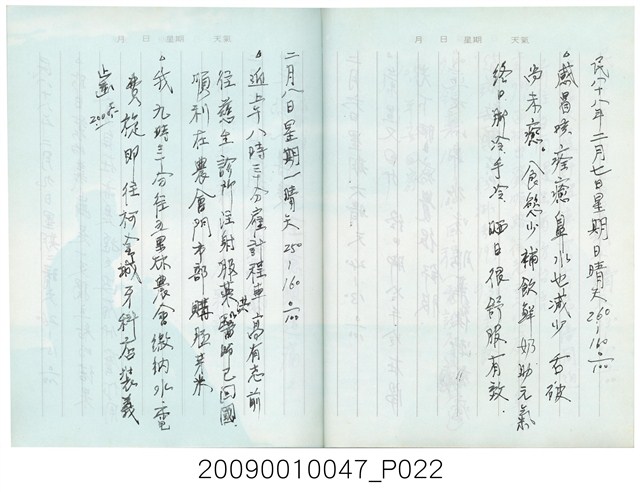 月 日 星期 天氣
民八十八年二月七日星期日晴天260-160 0/100
。感冒咳痊癒鼻水也減少 舌破
尚未癒。食慾少補飲鮮奶助元氣
終日腳冷手冷 晒日很舒服有效.
月 日 星期 天氣
二月八日星期一晴天 250-160 0/100
。近上午八時三十分雇計程車高有志前
往慈生診所注射服藥洪醫師已回國
順利在農會門市部購極芽米
。我九時三十分往五里林農會繳納水.電
費旋即往柯金城牙科店裝義
齒 200
20090010047_P022